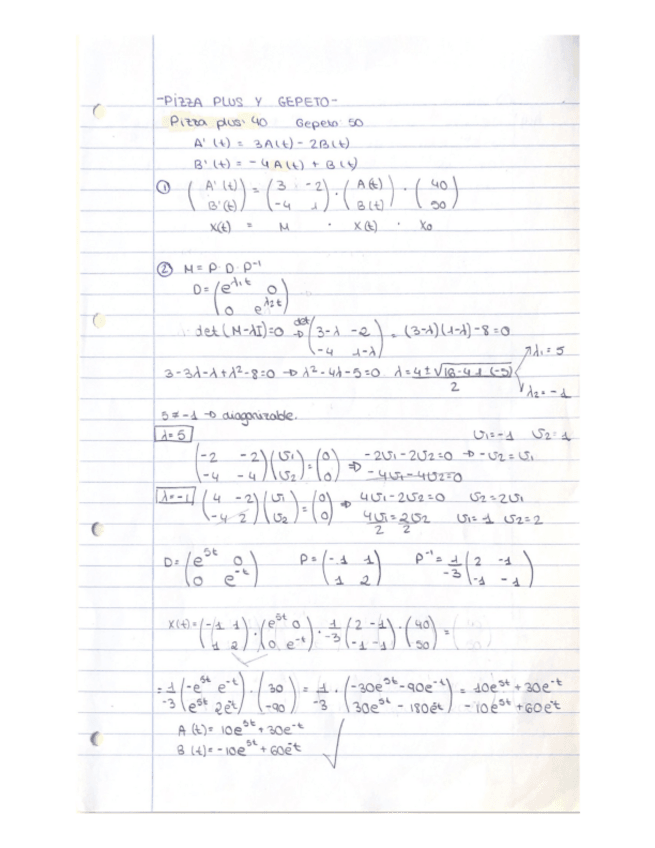 -PIZZA PLUS Y GEPETO-
Pizza plus: 40 Gepeto: 50
A'(t) = 3A(t) - 2B(t)
B'(t) = -4A(t) + B(t)
① (A'(t) B'(t)) = (3 -2 -4 1) · (A(t) B(t)) · (40 50)
X(t) = M · X(t) · X0
② M = P·D·P⁻¹
D = (e^λ1t 0 0 e^λ2t)
det(M-λI)=0 → det (3-λ -2 -4 1-λ) = (3-λ)(1-λ)-8=0
3-3λ-λ+λ²-8=0 → λ²-4λ-5=0 λ = 4±√16-4·1·(-5) / 2 λ1=5 λ2=-1
5≠-1 → diagonizable.
λ=5 v1=-1 v2=1
(-2 -2 -4 -4)(v1 v2) = (0 0) ⇒ -2v1-2v2=0 → -v2=v1
-4v1-4v2=0
λ=-1 (4 -2 -4 2)(v1 v2) = (0 0) ⇒ 4v1-2v2=0 v2=2v1
4v1/2=2v2/2 v1=1 v2=2
D = (e^5t 0 0 e^-t) P = (-1 1 1 2) P⁻¹ = 1/-3 (2 -1 -1 -1)
X(t) = (-1 1 1 2) · (e^5t 0 0 e^-t) · 1/-3 (2 -1 -1 -1) · (40 50) =
= 1/-3 (-e^5t e^-t e^5t 2e^-t) · (30 -90) = 1/-3 · (-30e^5t-90e^-t 30e^5t-180e^-t) = 10e^5t+30e^-t -10e^5t+60e^-t
A(t) = 10e^5t+30e^-t
B(t) = -10e^5t+60e^-t